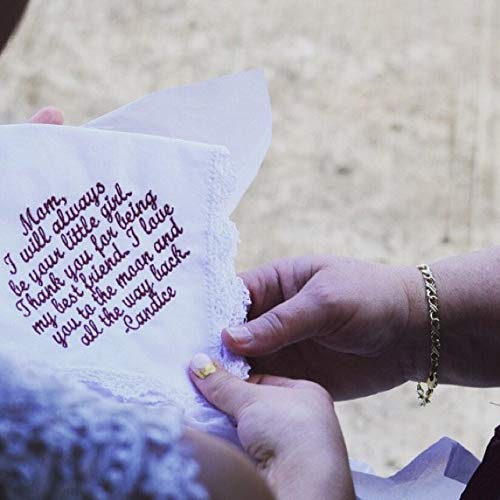 Mom,
I will always
be your little girl.
Thank you for being
my best friend. I love
you to the moon and
all the way back.
Candice